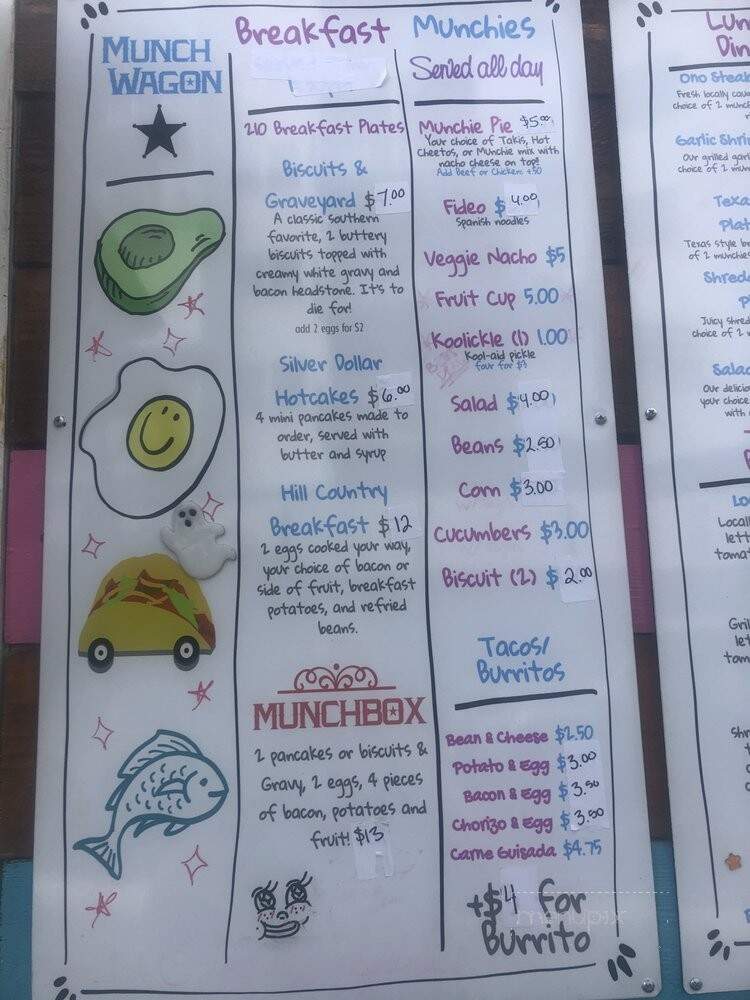 MUNCH
WAGON
Breakfast
210 Breakfast Plates
Biscuits &
Graveyard $7.00
A classic southern
favorite, 2 buttery
biscuits topped with
creamy white gravy and
bacon headstone. It's to
die for!
add 2 eggs for $2
Silver Dollar
Hotcakes $6.00
4 mini pancakes made to
order, served with
butter and syrup
Hill Country
Breakfast $12
2 eggs cooked your way,
your choice of bacon or
side of fruit, breakfast
potatoes, and refried
beans.
MUNCHBOX
2 pancakes or biscuits &
Gravy, 2 eggs, 4 pieces
of bacon, potatoes and
fruit! $13
Munchies
Served all day
Munchie Pie $5.00
Your choice of Takis, Hot
Cheetos, or Munchie mix with
nacho cheese on top!
Add Beef or Chicken +.50
Fideo $4.00
Spanish noodles
Veggie Nacho $5
Fruit Cup 5.00
Koolickle (1) 1.00
Kool-aid pickle
four for $3
Salad $4.00
Beans $2.50
Corn $3.00
Cucumbers $3.00
Biscuit (2) $2.00
Tacos/
Burritos
Bean & Cheese $2.50
Potato & Egg $3.00
Bacon & Egg $3.50
Chorizo & Egg $3.50
Carne Guisada $4.75
+$4 for
Burrito
Ono Steak
Fresh locally
choice of 2
Garlic
Our grilled
choice of 2
Texas
Texas style
of 2 munchies
Juicy
choice of 2
Salad
Our
your choice
with